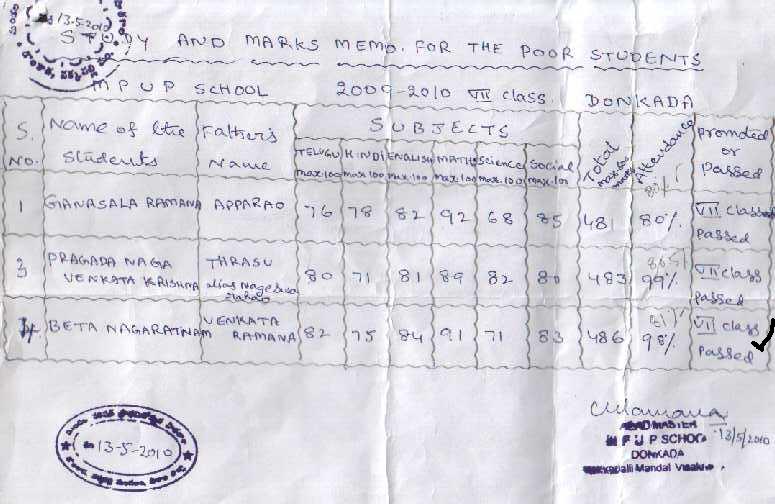 13-5-2010
STUDY AND MARKS MEMO. FOR THE POOR STUDENTS
MPUP SCHOOL 2009-2010 VII class. DONKADA
S. NO. Name of the Students Father's Name SUBJECTS Total Attendance promoted or Passed
TELUGU max.100 HINDI max.100 ENGLISH max.100 MATHS max.100 Science max.100 Social max.100
80%
1 GANASALA RAMANA APPARAO 76 78 82 92 68 85 481 80% VII class passed
3 PRAGADA NAGA VENKATA KRISHNA THRASU alias 80 71 81 89 82 80 483 99% VII class passed
BETA NAGARATNAM VENKATA RAMANA 82 75 84 91 71 83 486 98% class passed
13-5-2010
13/5/2010
M P U P SCHOO
DONKADA
Mandal